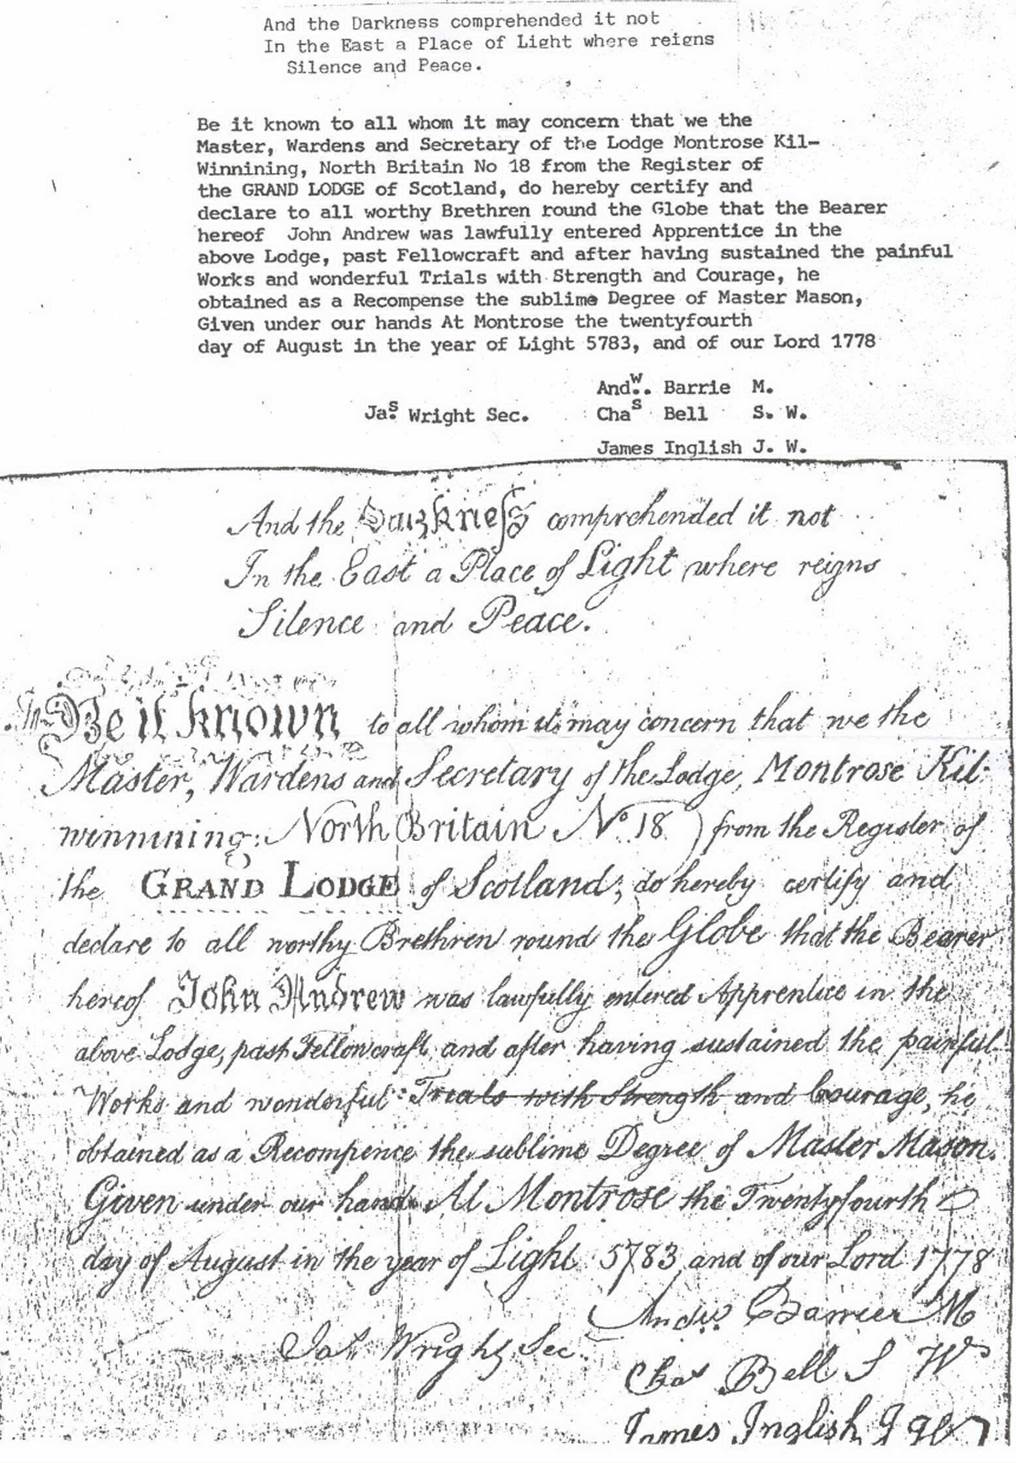 And the Darkness comprehended it not
In the East a Place of Light where reigns
Silence and Peace.
Be it known to all whom it may concern that we the
Master, Wardens and Secretary of the Lodge Montrose Kil-
Winnining, North Britain No 18 from the Register of
the GRAND LODGE of Scotland, do hereby certify and
declare to all worthy Brethren round the Globe that the Bearer
hereof John Andrew was lawfully entered Apprentice in the
above Lodge, past Fellowcraft and after having sustained the painful
Works and wonderful Trials with Strength and Courage, he
obtained as a Recompense the sublime Degree of Master Mason,
Given under our hands At Montrose the twentyfourth
day of August in the year of Light 5783, and of our Lord 1778
Andw. Barrie M.
Jas. Wright Sec. Chas Bell S. W.
James Inglish J. W.
And the Darkness comprehended it not
In the East a Place of Light where reigns
Silence and Peace.
Be it known to all whom it may concern that we the
Master, Wardens and Secretary of the Lodge, Montrose Kil-
winnining: North Britain No. 18) from the Register of
the GRAND LODGE of Scotland; do hereby certify and
declare to all worthy Brethren round the Globe that the Bearer
hereof John Andrew was lawfully entered Apprentice in the
above Lodge, past Fellowcraft, and after having sustained the painful
Works and wonderful Trials with Strength and Courage, he
obtained as a Recompence the sublime Degree of Master Mason.
Given under our hands At Montrose the Twentyfourth
day of August in the year of Light 5783 and of our Lord 1778
Andw. Barrier M
Jas. Wright Sec.
Chas Bell S W
James Inglish J W